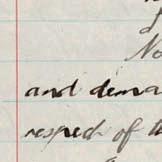 No
and dema
respech of t